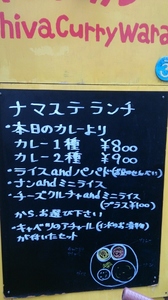 hiva Curry wara
ナマステランチ
・本日のカレーより
カレー1種 ¥800
カレー2種 ¥900
・ライスandパパド(豆のせんべい)
・ナンandミニライス
・チーズクルチャandミニライス
(プラス¥100)
からお選び下さい
・キャベツのアチャール(インドのお漬物)
が付いたセット